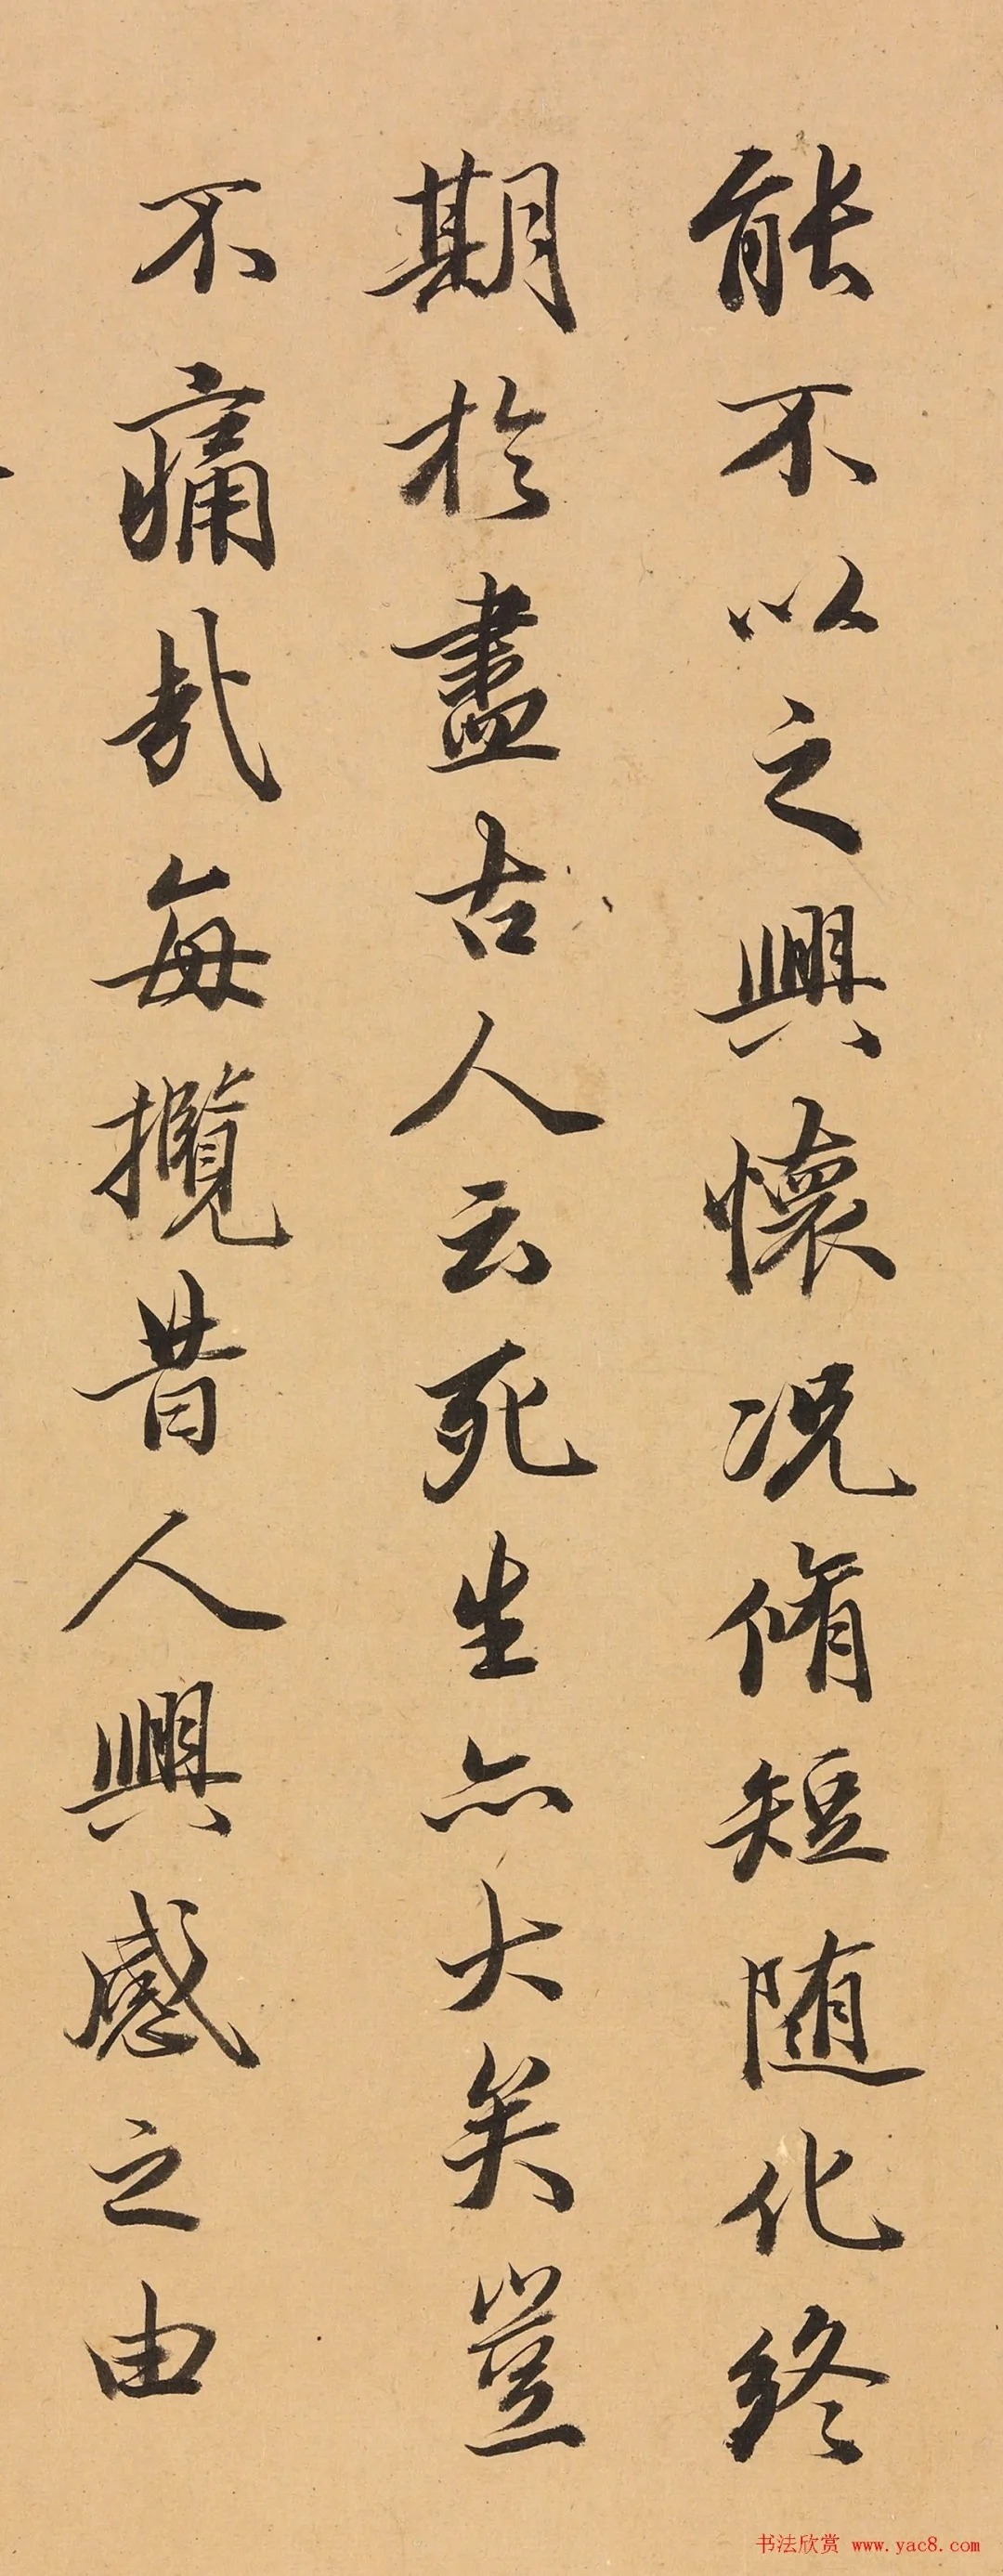 能不以之興懷况脩短随化終
期於盡古人云死生亦大矣豈
不痛哉每攬昔人興感之由
书法欣赏 www.yac8.com